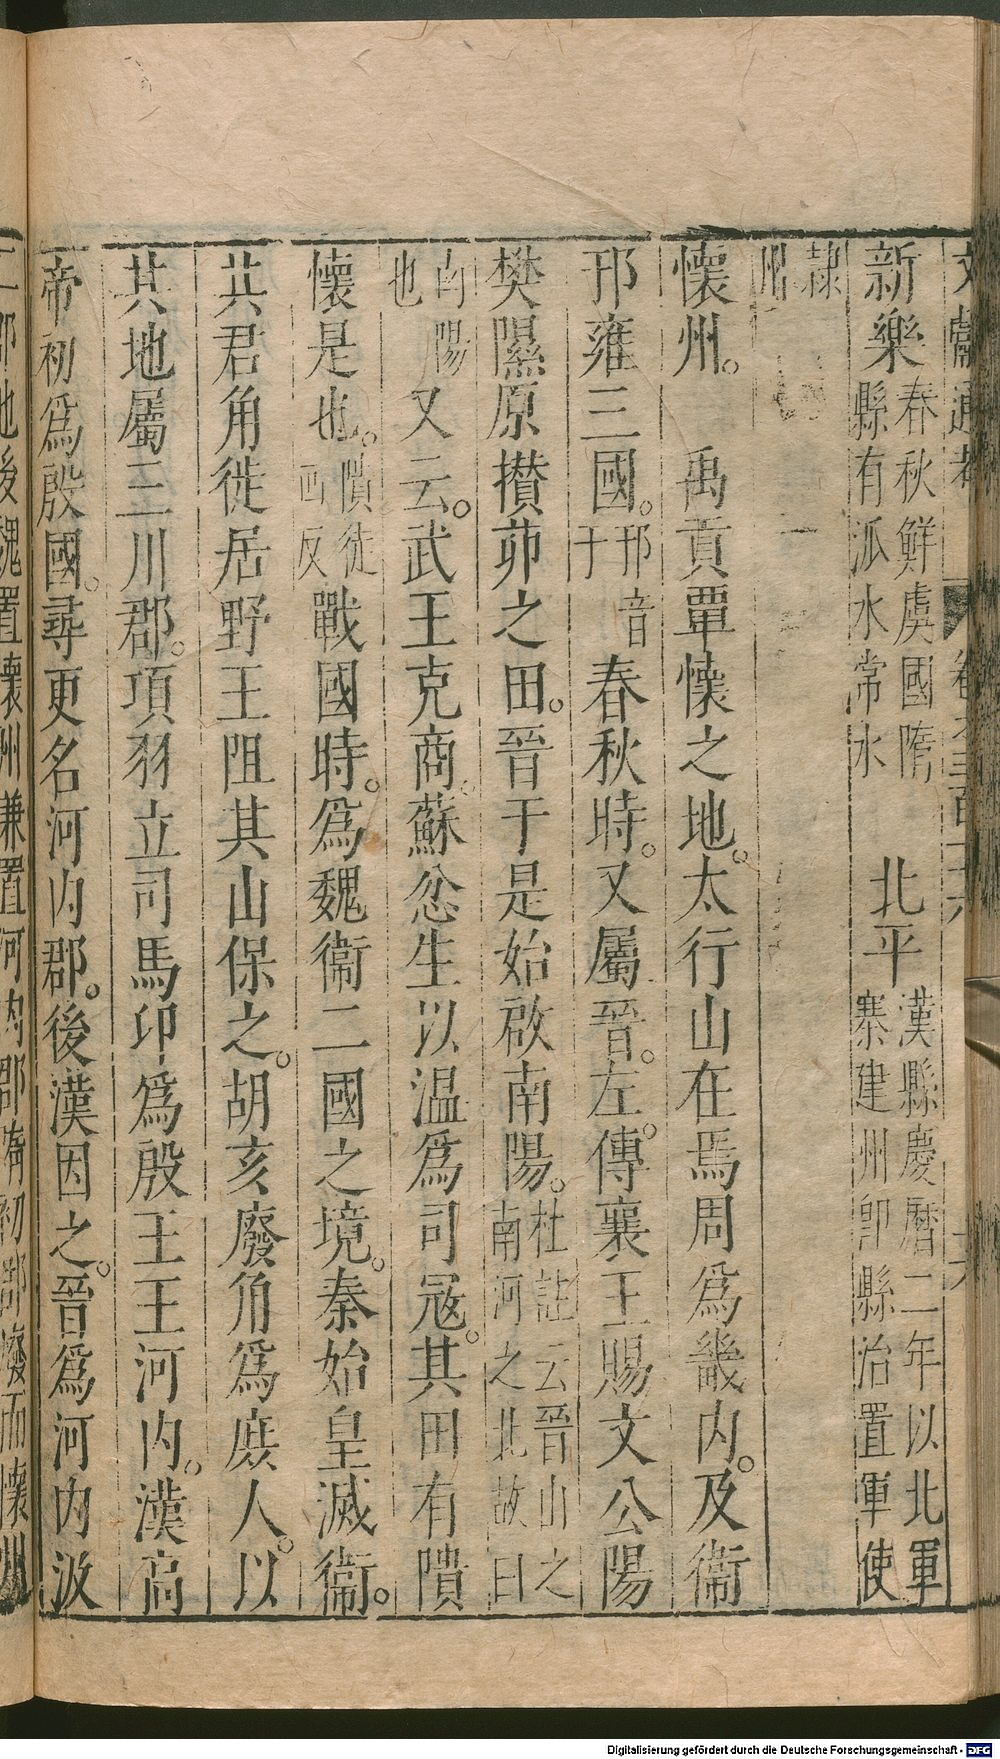 文獻通考 卷之三百十六 十六
新樂春秋鮮虞國隋縣有泒水常水 北平漢縣慶曆二年以北寨建州卽縣治置軍使軍
隸州
懷州。 禹貢覃懷之地。太行山在焉周爲畿內。及衞
邘雍三國。邘音于春秋時。又屬晉。左。傳襄王賜文公陽
樊隰原攅茆之田。晉于是始啟南陽。杜註云晉山之南河之北故曰
南陽也又云。武王克商。蘇忿生以温爲司冦。其田有隤
懷是也。隤徒回反戰國時。爲魏衞二國之境。秦始皇滅衞。
其君角徙居野王阻其山保之。胡亥廢角爲庶人。以
其地屬三川郡。項羽立司馬卬爲殷王王河內。漢高
帝初爲殷國。尋更名河內郡。後漢因之。晉爲河內汲
二郡地後魏置懷州兼置河內郡隋初郡廢而懷州
Digitalisierung gefördert durch die Deutsche Forschungsgemeinschaft - DFG